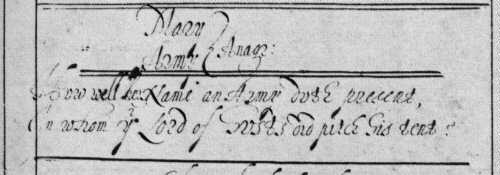 Mary
Army } Anagr:
How well her Name an Army doth present,
In whom yᵉ Lord of Hosts did pitch his tent!